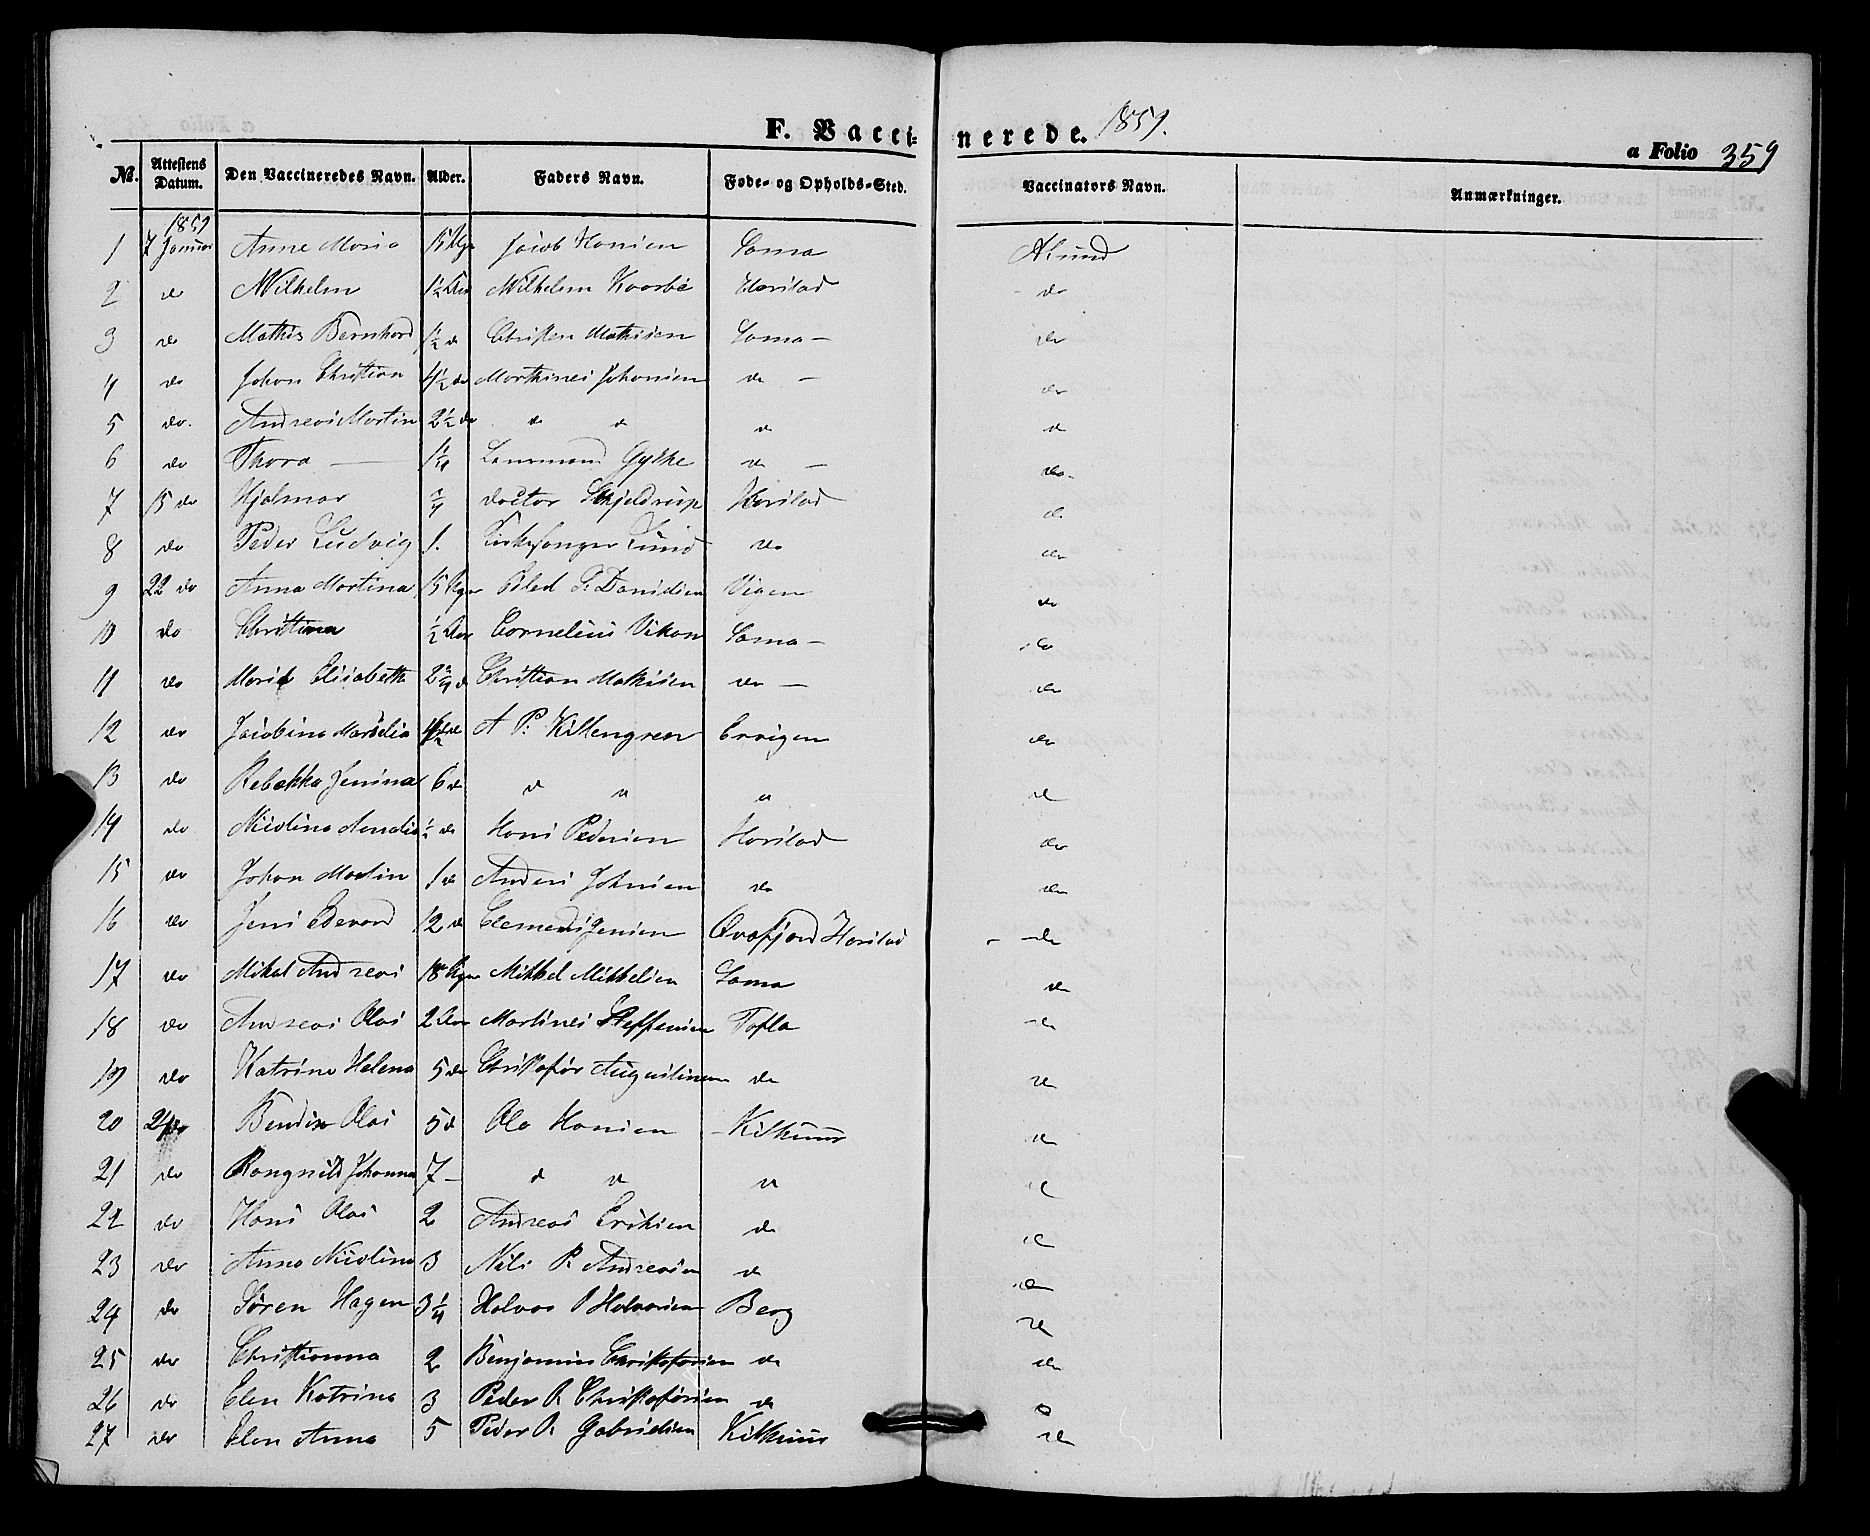 F. Vaccinerede. 1859.
a Folio 359
No. Attestens Datum. Den Vaccineredes Navn. Alder. Faders Navn. Føde- og Opholds-Sted. Vaccinators Navn. Anmærkninger.
1859
1 7 Januar Anne Maria 15 Uger Jacob Hansen Sama
2 do Wilhelm 1½ Aar Wilhelm Harstad do
3 do Mathis Bernhard 1½ do Christen Mathisen Sama — do
4 do Johan Christian 4½ do Marthines Johansen do — do
5 do Andreas Martin 2½ do do d d d
6 do Thora — 1¼ Lensmand d — do
7 15 do Hjalmar ¾ doctor Schjeldrup Harstad d
8 do Peder Ludvig 1. Kirkesanger Lund do do
9 22 do Anna Martina 15 Uger P. Danielsen Vigen do
10 do Christiana ½ Aar Cornelius Vikan Sama — do
11 do Marie Elisabeth 2¾ d Christian Mathisen do — do
12 do Jacobine A P. do
13 do Rebekka Jenina 6 d d d d d
14 do Nicoline ½ do Hans Pedersen Harstad do
15 do Johan Martin 1 d Anders Johnsen do do
16 do Jens Edevard 12 d Clement Jensen Harstad do
17 do Mikal Andreas 18 Uger Mikkel Mikkelsen Sama do
18 do Andreas Olai 2 Aar Martines Steffensen Tofta do
19 do Katrine Helena 5 do Christofør do d
20 24 do Olai 5 d Ole Hansen d
21 do Rangnild Johanna 7 — d d d d
22 do Hans Olai 2 Andreas Eriksen d d
23 do Anna Nicoline 3 Nils P. Andreasen d do
24 do Søren Hagen 3¼ Halvor Halvorsen Berg d
25 do Christianna 2 Benjamin Christofersen do do
26 do Elen Katrina 3 Peder Christoførsen d
27 do Elen Anna 5 Peder Gabrielsen d